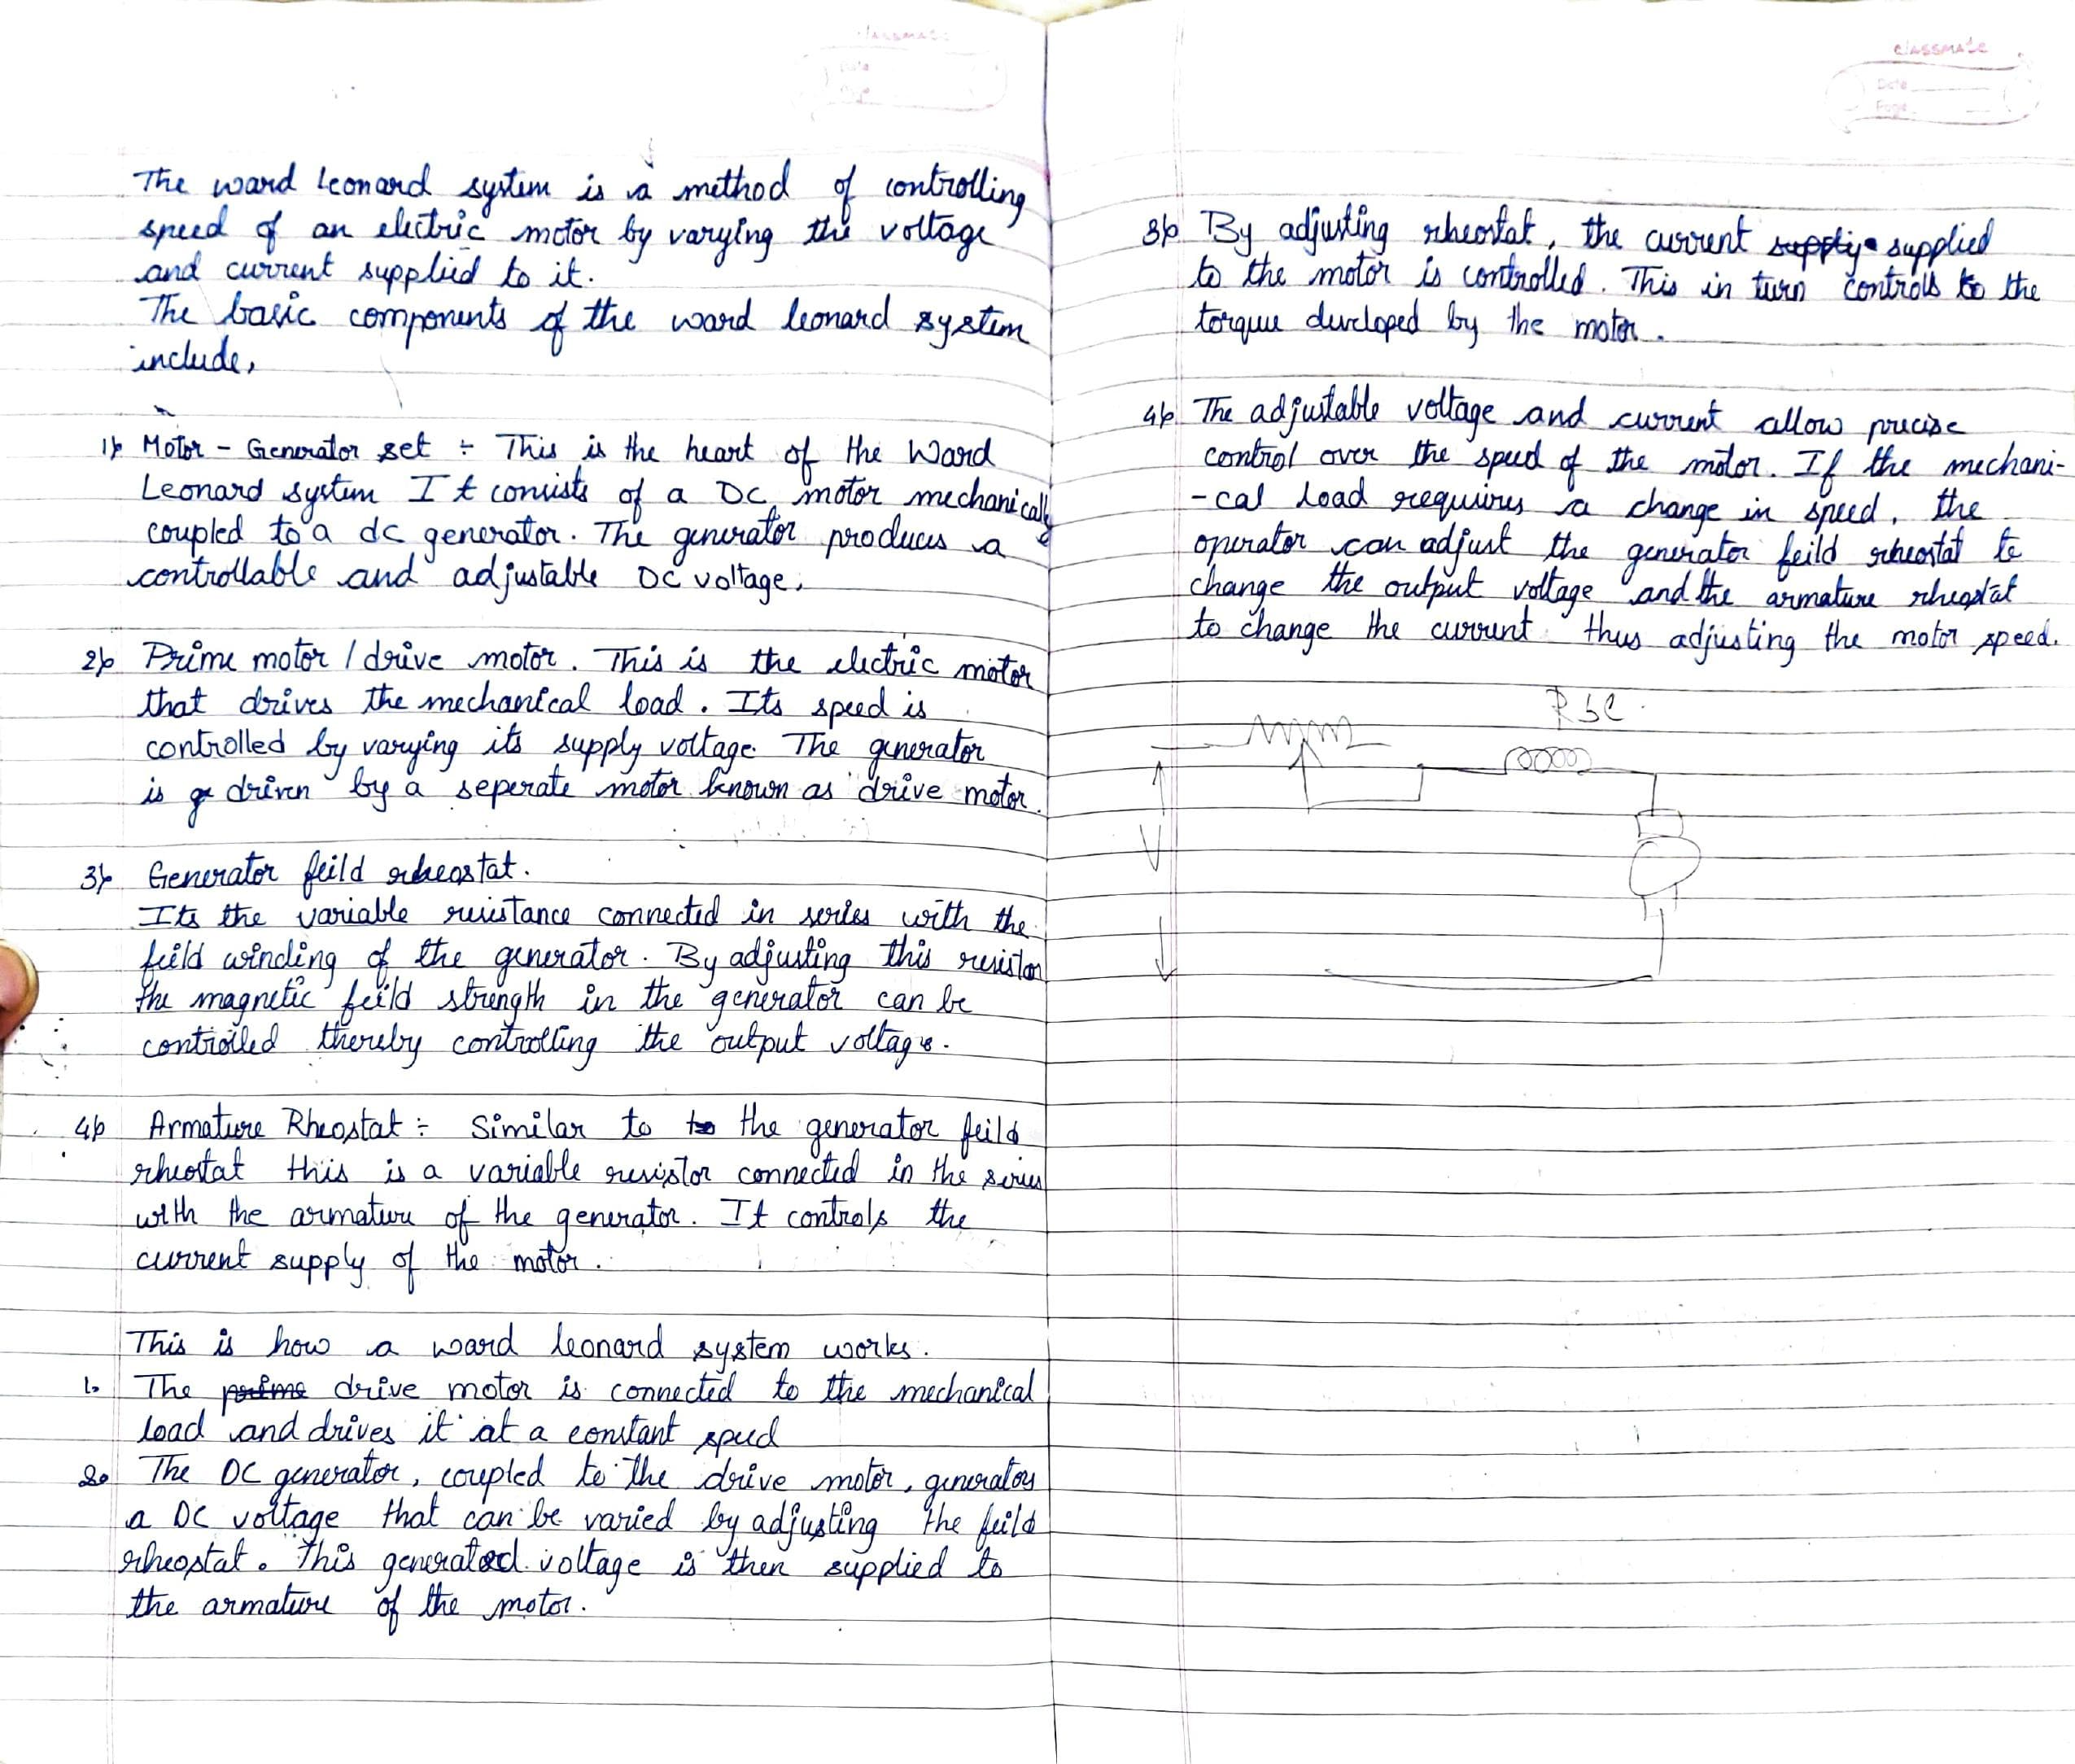 classmate
Date
Page
The ward leonard system is a method of controlling
speed of an electric motor by varying the voltage
and current supplied to it.
The basic components of the ward leonard system
include,
1) Motor - Generator set ÷ This is the heart of the Ward
Leonard system It consists of a DC motor mechanically
coupled to a dc generator. The generator produces a
controllable and adjustable DC voltage.
2) Prime motor / drive motor. This is the electric motor
that drives the mechanical load. Its speed is
controlled by varying its supply voltage. The generator
is driven by a seperate motor known as drive motor.
3) Generator feild rheostat.
Its the variable resistance connected in series with the
feild winding of the generator. By adjusting this resistor
the magnetic feild strength in the generator can be
controlled thereby controlling the output voltage.
4) Armature Rheostat ÷ Similar to to the generator feild
rheostat this is a variable resistor connected in the series
with the armature of the generator. It controls the
current supply of the motor.
This is how a ward leonard system works.
1. The prime drive motor is connected to the mechanical
load and drives it at a constant speed
2. The DC generator, coupled to the drive motor, generators
a DC voltage that can be varied by adjusting the feild
rheostat. This generated voltage is then supplied to
the armature of the motor.
classmate
Date
Page
3) By adjusting rheostat, the current supply supplied
to the motor is controlled. This in turn controls to the
torque developed by the motor.
4) The adjustable voltage and current allow precise
control over the speed of the motor. If the mechani-
-cal load requires a change in speed, the
operator can adjust the generator feild rheostat to
change the output voltage and the armature rheostat
to change the current thus adjusting the motor speed.
Rse
V